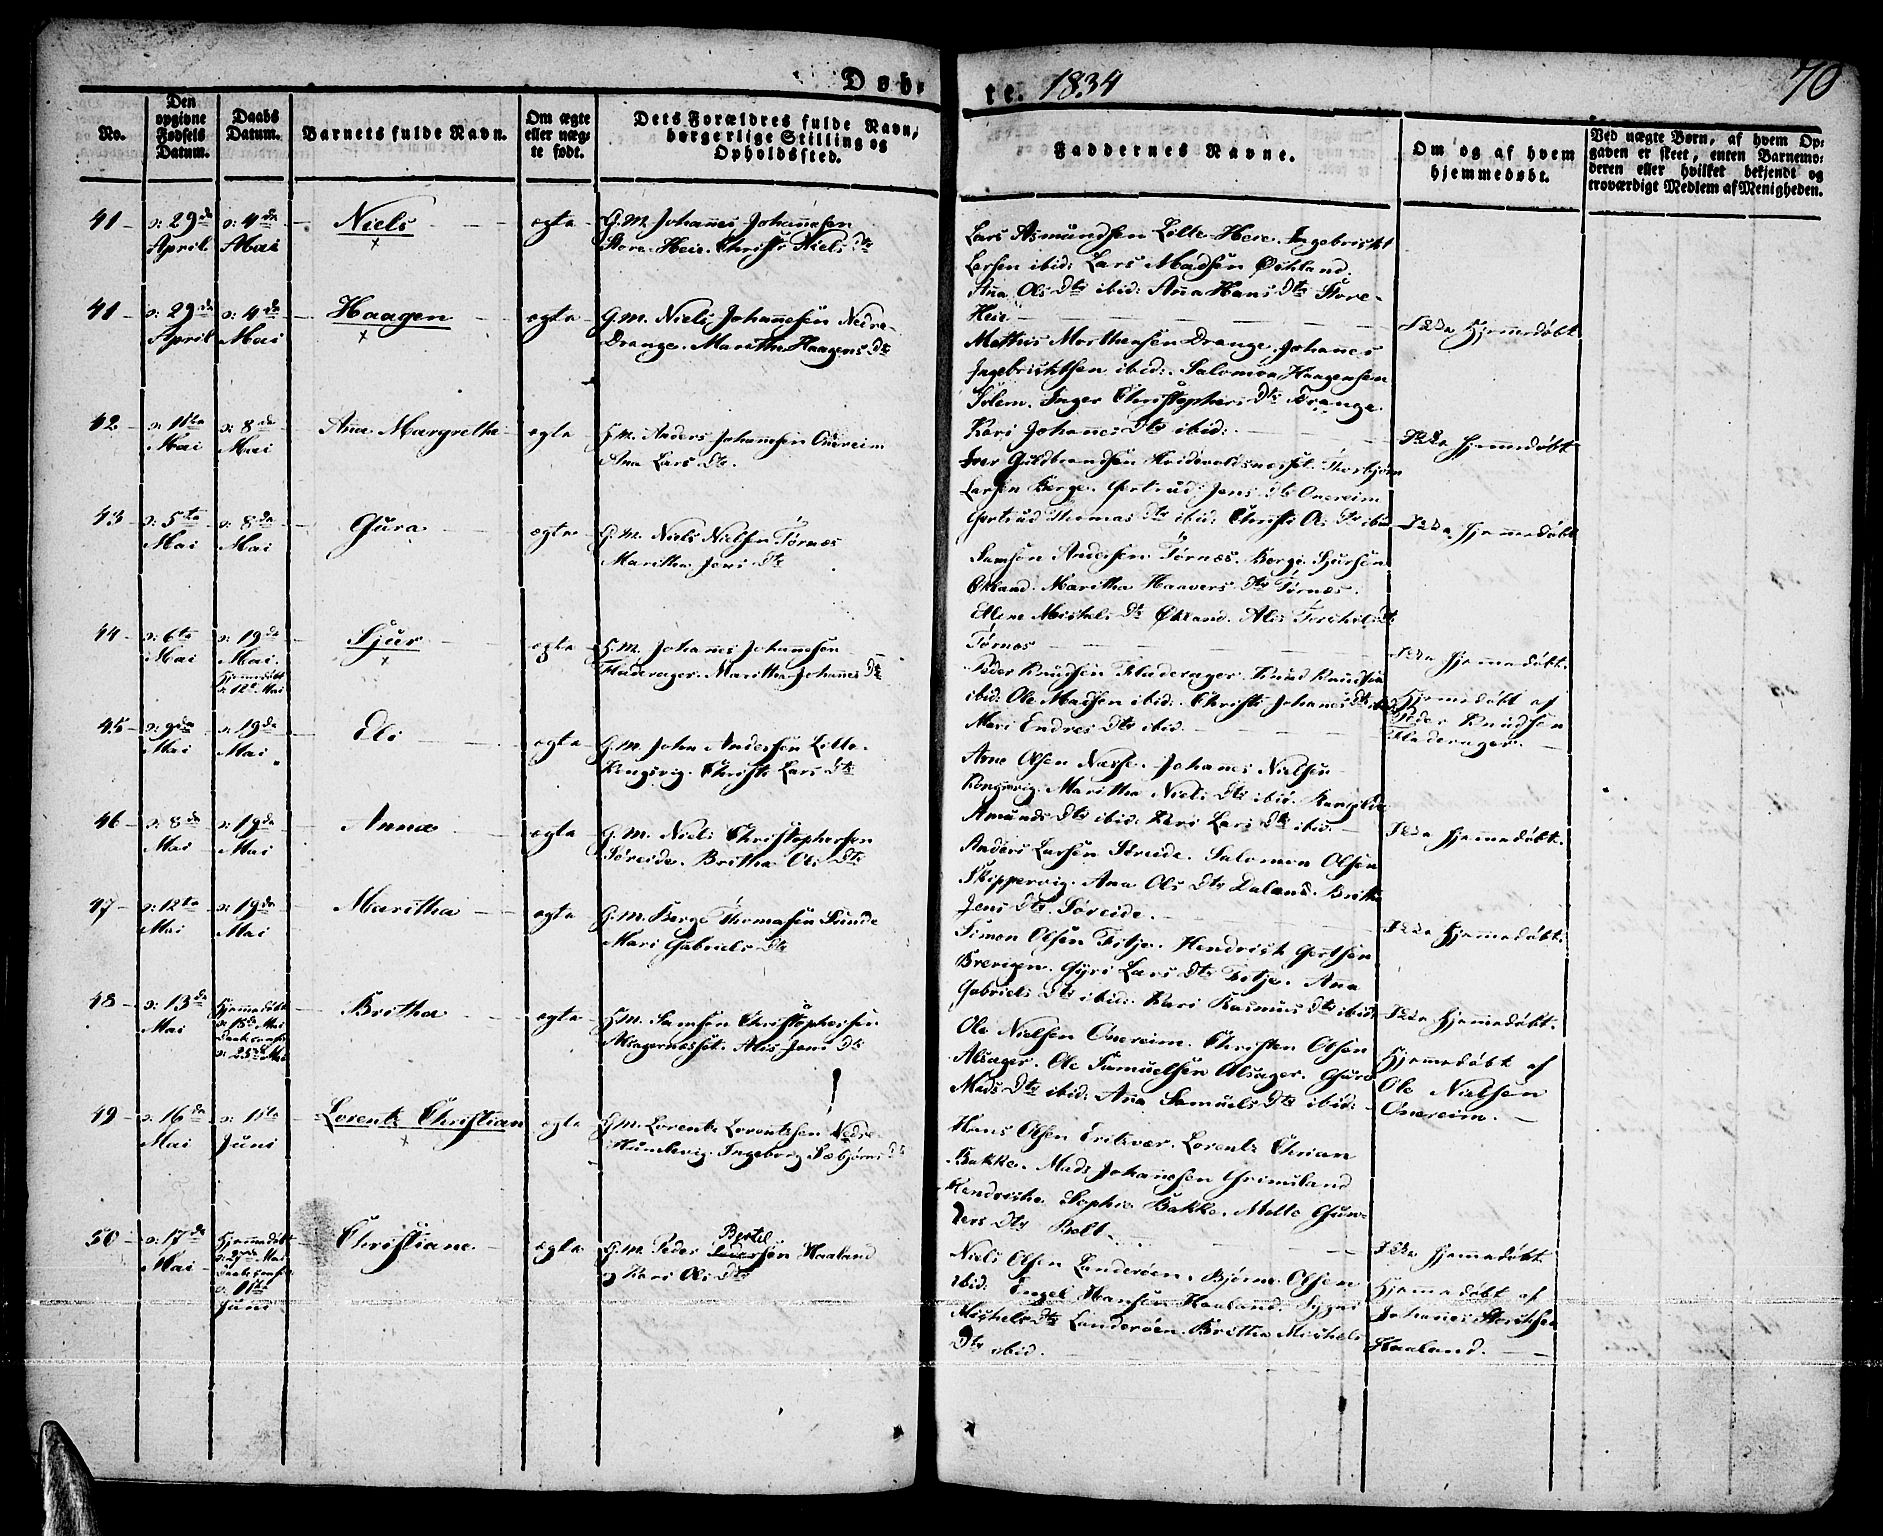 Døbte. 1834
70
No.
Den opgivne Fødsels Datum.
Daabs Datum.
Barnets fulde Navn.
Om ægte eller uægte født.
Dets Forældres fulde Navn, borgerlige Stilling og Opholdssted.
Faddernes Navne.
Om og af hvem hjemmedøbt.
Ved uægte Børn, af hvem Opgaven er skeet, enten Barnemoderen eller hvilket bekjendt og troværdigt Medlem af Menigheden.
41 29de April 4de Mai Niels ægte G.M. Johannes Johannesen
Store Heie. Christi Niels Dtr
Lars Asmundsen Lille Heie. Ingebrickt
Larsen ibid: Lars Madsen Økland.
Anna Ols Dtr ibid: Anna Hans Dtr Store
Heie
41 29de April 4de Mai Haagen ægte G.M. Niels Johannesen Nedre
Drange. Maritha Haagens Dtr
Mathis Morthensen Drange. Johannes
Ingebricktsen ibid: Salomon Haagensen
Solem. Inger Christophers Dtr Drange.
Kari Johannes Dtr ibid:
Ikke Hjemmedøbt
42 1ste Mai 8de Mai Ana Margretha ægte G.M. Anders Johannesen Onereim
Ana Lars Dtr.
Iver Guldbrandsen Thorbjørn
Larsen Berge. Gertrud Jens Dtr Onereim
Gertrud Thomas Dtr ibid: Christi Ols Dtr ibid
Ikke Hjemmedøbt
43 5te Mai 8de Mai Gura ægte G.M. Niels Nielsen Tørnæs
Maritha Jens Dtr
Samson Andersen Tørnæs. Berge Sjursen
Økland. Maritha Haavers Dtr Tørnæs.
Elene Mickels Dtr Økland. Alis Torkils Dtr
Tørnæs
Ikke Hjemmedøbt
44 6te Mai 19de Mai. Hjemmedøbt 12te Mai Sjur ægte G.M. Johannes Johannesen
Fladerager. Maritha Johannes Dtr
Peder Knudsen Fladerager. Knud Knudsen
ibid: Ole Madsen ibid: Christi Johannes Dtr ibid
Mari Endres Dtr ibid.
Ikke Hjemmedøbt.
Hjemmedøbt af
Peder Knudsen
Fladerager.
45 9de Mai 19de Mai Eli ægte G.M. John Andersen Lille
Kongsvig. Christi Lars Dtr
Arne Olsen Næsse. Johannes Nielsen
Kongsvig. Maritha Niels Dtr ibid.
Amunds Dtr ibid: Kari Lars Dtr ibid.
46 8de Mai 19de Mai Anna ægte G.M. Niels Christophersen
Søreide. Britha Ols Dtr
Anders Larsen Søreide. Salomon Olsen
Skippervig. Ana Ols Dtr Daland. Britha
Jens Dtr Søreide.
Ikke Hjemmedøbt.
47 12te Mai 19de Mai Maritha ægte G.M. Berge Thomasen Sunde
Mari Gabriels Dtr
Simon Olsen Fitje. Hendrick Gertsen
Brevigen. Gyri Lars Dtr Fitje. Anna
Gabriels Dtr ibid: Kari Rasmus Dtr ibid:
Ikke Hjemmedøbt.
48 13de Mai Hjemmedøbt 15de Mai 25de Mai Britha ægte G.M. Samson Christophersen
Alsagernæsset. Alis Jens Dtr
Ole Nielsen Onereim. Christen Olsen
Alsager. Ole Samuelsen Alsager. Guro
Mads Dtr ibid: Anna Samuels Dtr ibid:
Ikke Hjemmedøbt.
Hjemmedøbt af
Ole Nielsen
Onereim.
49 16de Mai 1ste Juni Lorentz Christian ægte G.M. Lorentz Lorentzsen Nedre
Humlevig. Ingeborg Sæbjørns Dtr
Hans Olsen Eritzvær. Lorentz Chrian
Bakke. Mads Johannesen Grimsland
Hendricke Sophie Bakke. Mette Gun-
ders Dtr Belt.
Ikke Hjemmedøbt
50 17de Mai Hjemmedøbt Mai 1ste Juni Christiane ægte G.M. Peder Bertelsen Haaland
og Kari Ols Dtr
Niels Olsen Landerøen. Bjørne Olsen
ibid. Engel Hansen Haaland. Sygni
Mickels Dtr Landerøen. Britha Mickels
Dtr ibid.
Hjemmedøbt af
Johannes
Haaland.